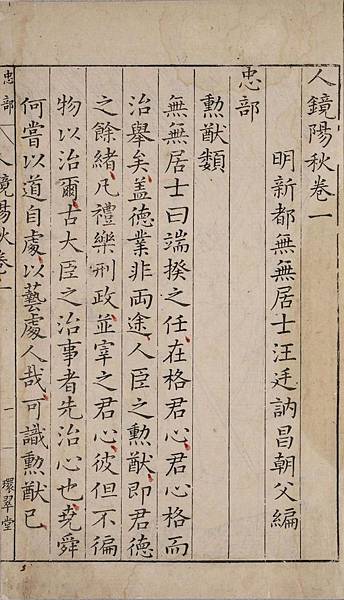 人鏡陽秋卷一
明新都無無居士汪廷訥昌朝父編
忠部
勲猷類
無無居士曰端揆之任在格君心君心格而
治舉矣盖德業非两途人臣之勲猷即君德
之餘緒凡禮樂刑政並宰之君心彼但不徧
物以治爾古大臣之治事者先治心也堯舜
何嘗以道自處以藝處人哉可識勲猷已
忠部
人鏡陽秋卷一
一
環翠堂